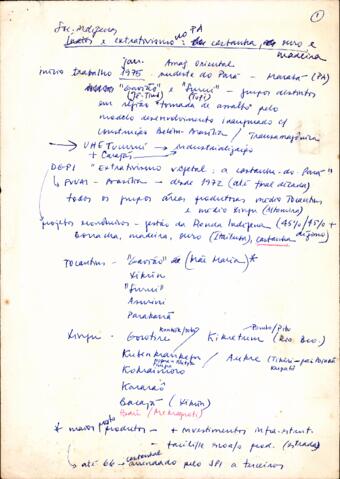 1
Soc. indígenas no PA
e extrativismo: castanha, ouro e madeira
jan. Amaz. oriental
início trabalho 1975 - sudeste do Pará - Marabá (PA)
"Gavião" e "Suruí" - grupos distintos
(Jê-Timb) (Tupi)
em região "tomada de assalto" pelo
modelo desenvolvimento inaugurado c/
construção Belém-Brasília / Transamazônica
UHE Tucuruí → industrialização
+ Carajás
"Extrativismo vegetal: a castanha-do-Pará"
↳ FUNAI - Brasília - desde 1972 (até final década)
todos os grupos áreas produtoras médio Tocantins
e médio Xingu (Altamira)
projetos econômicos - gestão da Renda Indígena (45%/45% +
borracha, madeira, ouro (Itaituba), castanha
Tocantins - "Gavião" de (Mãe Maria) *
Xikrin
"Suruí"
Asurini
Parakanã
Xingu - Gorotire / Kikretum
Kubenkrankegn / Aukre
Kokraimoro
Kararaô
Bacajá (Xikrin)
(Mekragnoti)
* maior produtos - + investimentos infra-estrut.
- prod. (estrada)
↳ até 66 - castanhal arrendado pelo SPI a terceiros